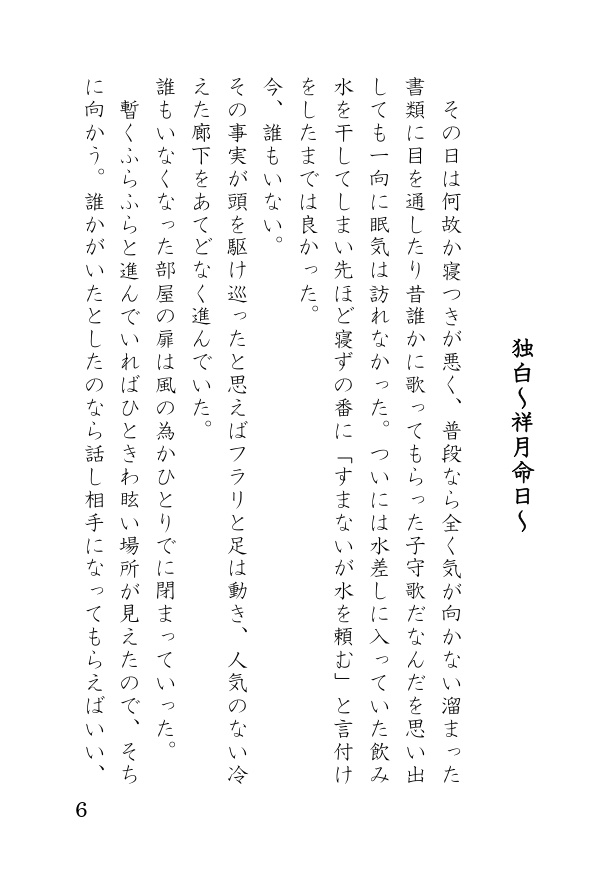 独白～祥月命日～
その日は何故か寝つきが悪く、普段なら全く気が向かない溜まった
書類に目を通したり昔誰かに歌ってもらった子守歌だなんだを思い出
しても一向に眠気は訪れなかった。ついには水差しに入っていた飲み
水を干してしまい先ほど寝ずの番に「すまないが水を頼む」と言付け
をしたまでは良かった。
今、誰もいない。
その事実が頭を駆け巡ったと思えばフラリと足は動き、人気のない冷
えた廊下をあてどなく進んでいた。
誰もいなくなった部屋の扉は風の為かひとりでに閉まっていった。
暫くふらふらと進んでいればひときわ眩い場所が見えたので、そち
に向かう。誰かがいたとしたのなら話し相手になってもらえばいい、
6